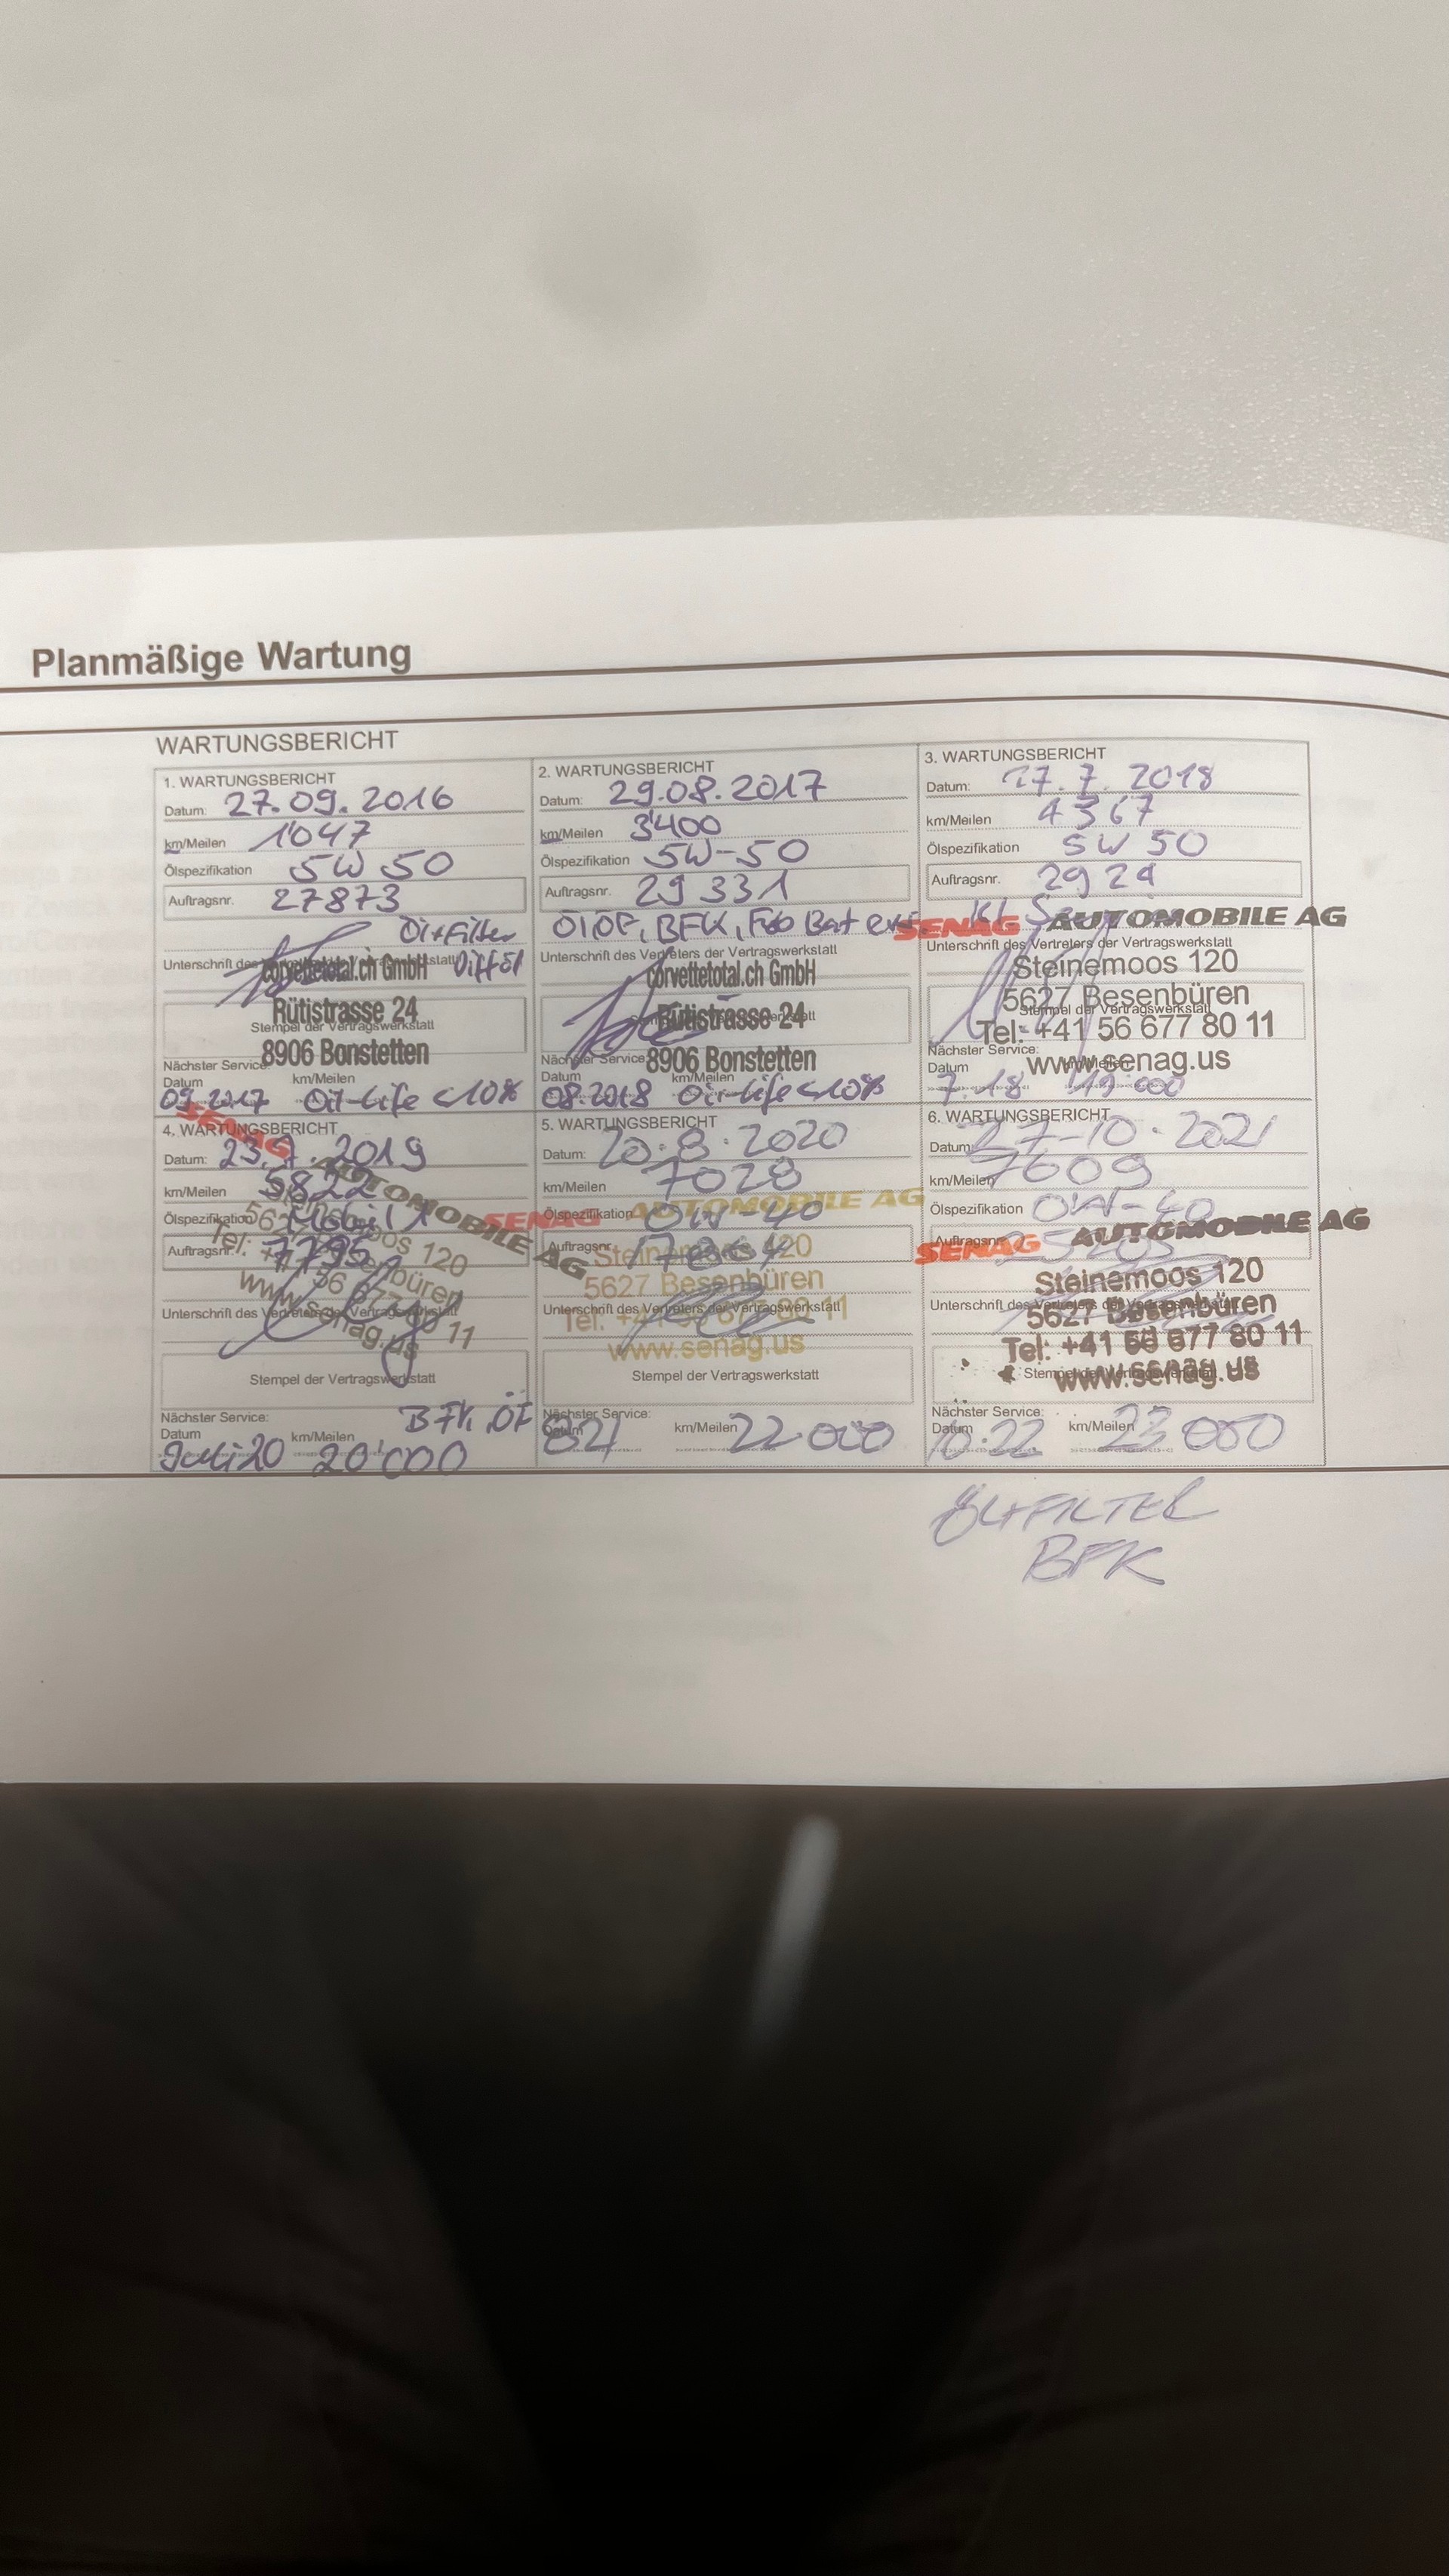 Planmäßige Wartung
WARTUNGSBERICHT
1. WARTUNGSBERICHT
Datum: 27.09.2016
km/Meilen 1'047
Ölspezifikation 5W 50
Auftragsnr. 27873
Öl+Filter
Unterschrift des Diff Öl
corvettetotal.ch GmbH
Rütistrasse 24
Stempel der Vertragswerkstatt
8906 Bonstetten
Nächster Service:
Datum km/Meilen
09.2017 Oil-Life <10%
2. WARTUNGSBERICHT
Datum: 29.08.2017
km/Meilen 3'400
Ölspezifikation 5W-50
Auftragsnr. 29331
BFK, Bat
Unterschrift des Vertreters der Vertragswerkstatt
corvettetotal.ch GmbH
Rütistrasse 24
8906 Bonstetten
Nächster Service
Datum km/Meilen
08.2018 Oil-Life <10%
3. WARTUNGSBERICHT
Datum: 27.7.2018
km/Meilen 4367
Ölspezifikation 5W 50
Auftragsnr. 2924
SENAG AUTOMOBILE AG
Unterschrift des Vertreters der Vertragswerkstatt
Steinemoos 120
5627 Besenbüren
Stempel der Vertragswerkstatt
Tel: +41 56 677 80 11
Nächster Service:
www.senag.us
Datum
4. WARTUNGSBERICHT
SENAG AUTOMOBILE AG
Datum: 23.7.2019
km/Meilen 5822
Ölspezifikation Mobil 1
Auftragsnr. 7795
www.senag.us
Unterschrift des Vertreters der Vertragswerkstatt
Stempel der Vertragswerkstatt
Nächster Service: BFK, ÖF
Datum km/Meilen
Juli 20 20'000
5. WARTUNGSBERICHT
Datum: 20.8.2020
km/Meilen 7028
SENAG AUTOMOBILE AG
Ölspezifikation 0W-40
Auftragsnr.
Steinemoos 120
5627 Besenbüren
Unterschrift des Vertreters der Vertragswerkstatt
Tel: +41 56 677 80 11
www.senag.us
Stempel der Vertragswerkstatt
Nächster Service:
Datum km/Meilen 22000
6. WARTUNGSBERICHT
Datum: 27-10.2021
km/Meilen 7609
Ölspezifikation 0W-40
SENAG AUTOMOBILE AG
Auftragsnr.
Steinemoos 120
Unterschrift des Vertreters der Vertragswerkstatt
5627 Besenbüren
Tel: +41 56 677 80 11
www.senag.us
Nächster Service:
Datum 10.22 km/Meilen 23000
ÖL+FILTER
BFK